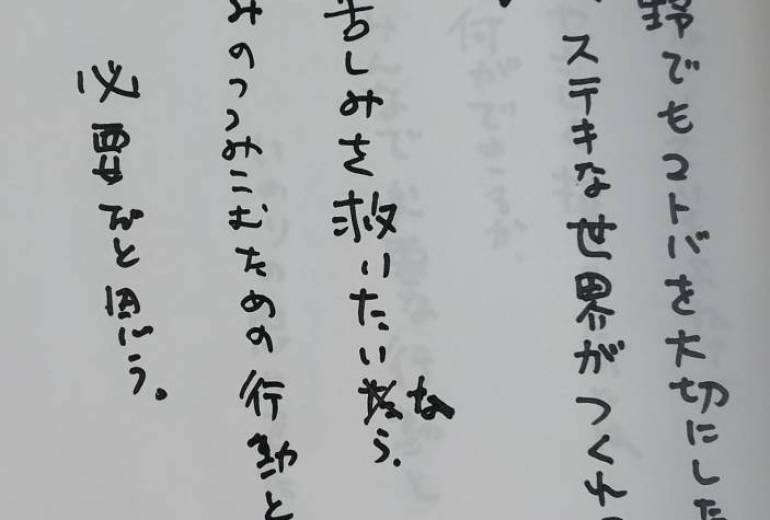 野でもコトバを大切にした
ステキな世界がつくれ
苦しみを救いたいな
う。
みのつつみこむための行動と
必要だと思う。